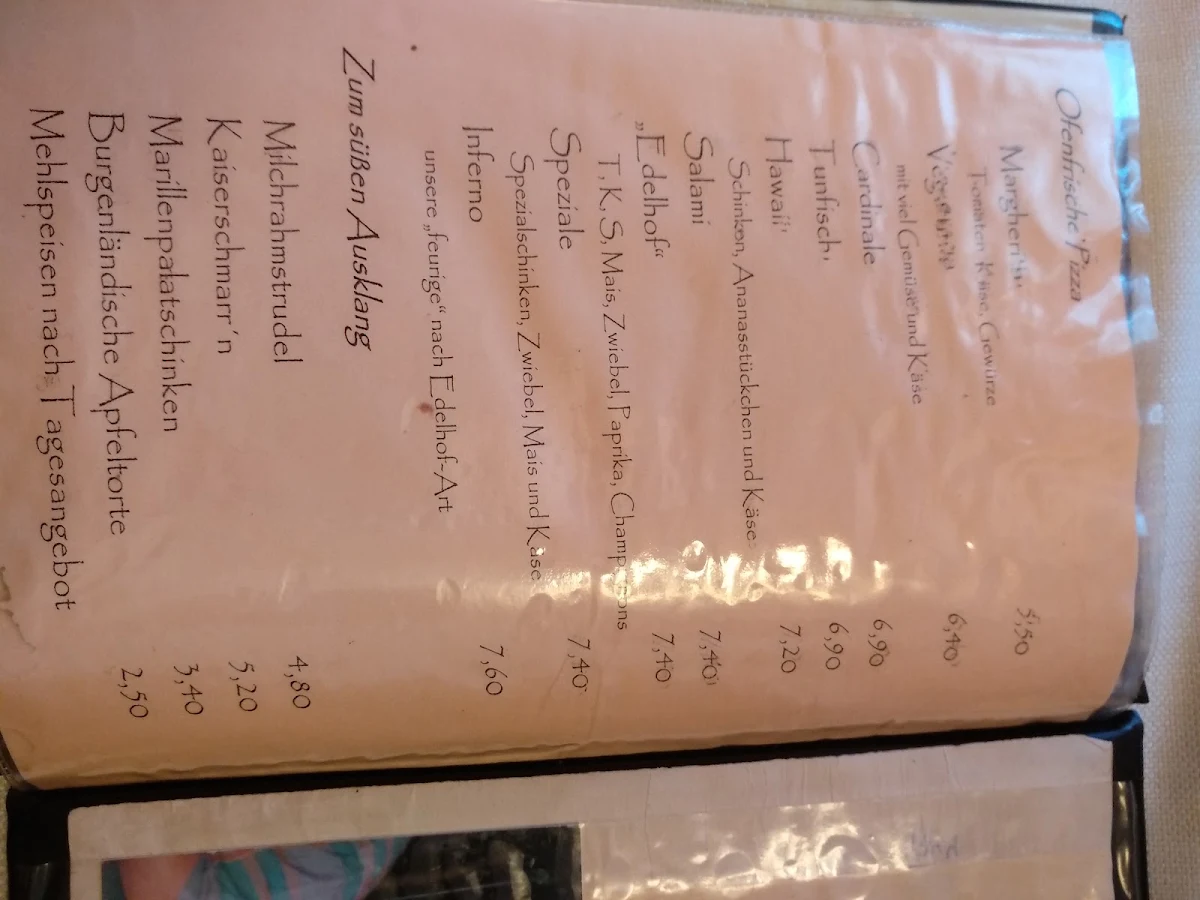 Ofenfrische Pizza
Margherita 5,50
Tomaten Käse, Gewürze
6,40
mit viel Gemüse und Käse
Cardinale 6,90
Tunfisch 6,90
Hawaii 7,20
Schinken, Ananasstückchen und Käse
Salami 7,40
„Edelhof“ 7,40
T, K, S, Mais, Zwiebel, Paprika, Champignons
Speziale 7,40
Spezialschinken, Zwiebel, Mais und Käse
Inferno 7,60
unsere „feurige“ nach Edelhof-Art
Zum süßen Ausklang
Milchrahmstrudel 4,80
Kaiserschmarr´n 5,20
Marillenpalatschinken 3,40
Burgenländische Apfeltorte 2,50
Mehlspeisen nach Tagesangebot